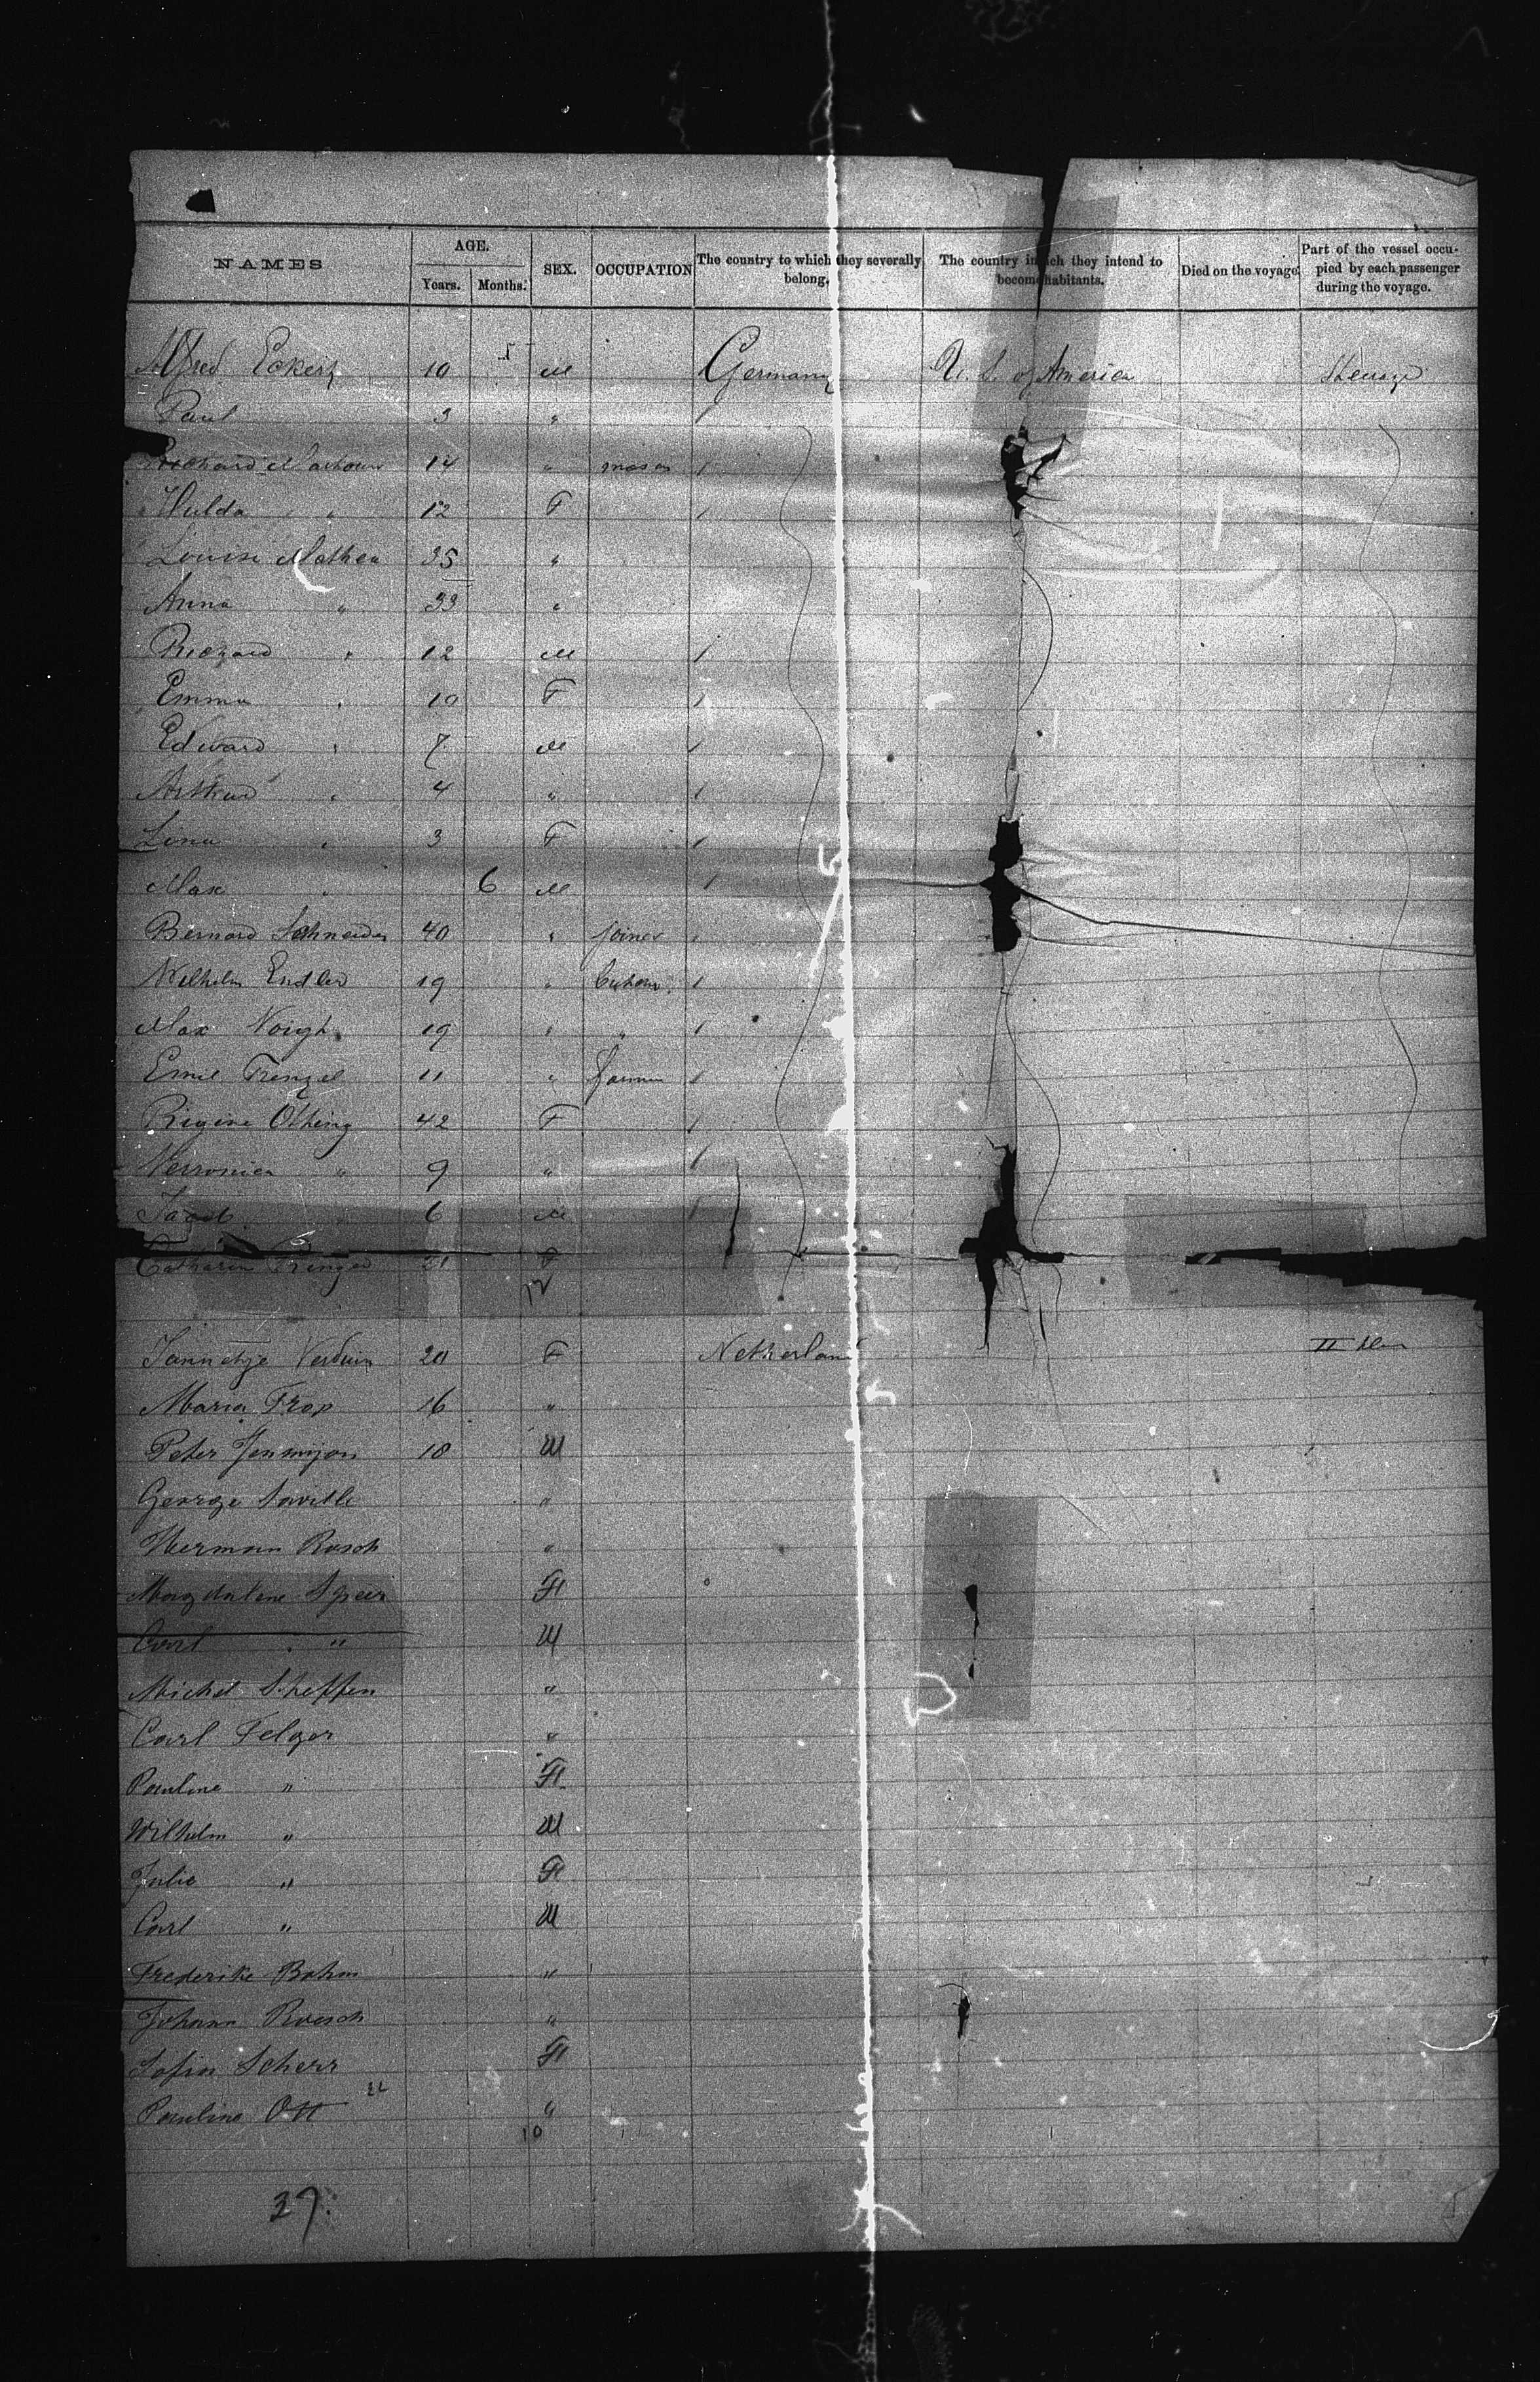 NAMES AGE. SEX. OCCUPATION The country to which they severally belong. The country in which they intend to become inhabitants. Died on the voyage Part of the vessel occupied by each passenger during the voyage.
Years. Months.
Alfred Eckert 10 M Germany U. S. of America Steerage
Paul 3 "
Richard 14 " mason
Hulda " 12 F
Louise Mathea 35 "
Anna " 33 "
Richard " 12 M
Emma " 10 F
Edward " 7 M
Arthur " 4 "
Lina " 3 F
Max " 6 M
Bernard Schneider 40 " joiner
Wilhelm Endler 19 "
Max Voigh 19 " "
Emil Frenzel 11 " farmer
Regine Othing 42 F
Verronica " 9 "
Jacob 6 M
Catharin 21 F
Jannetje Verduin 20 F Netherland II
Maria Trop 16 "
Peter 18 M
George Saville "
Herman Rosch "
Magdalene Speer F
Carl " M
Michel Steffen "
Carl Felger "
Pauline " F
Wilhelm " M
Julie " F
Carl " M
Frederike Bohm "
Johann Roesch "
Sofia Scherr F
Pauline Ott "
10
37.